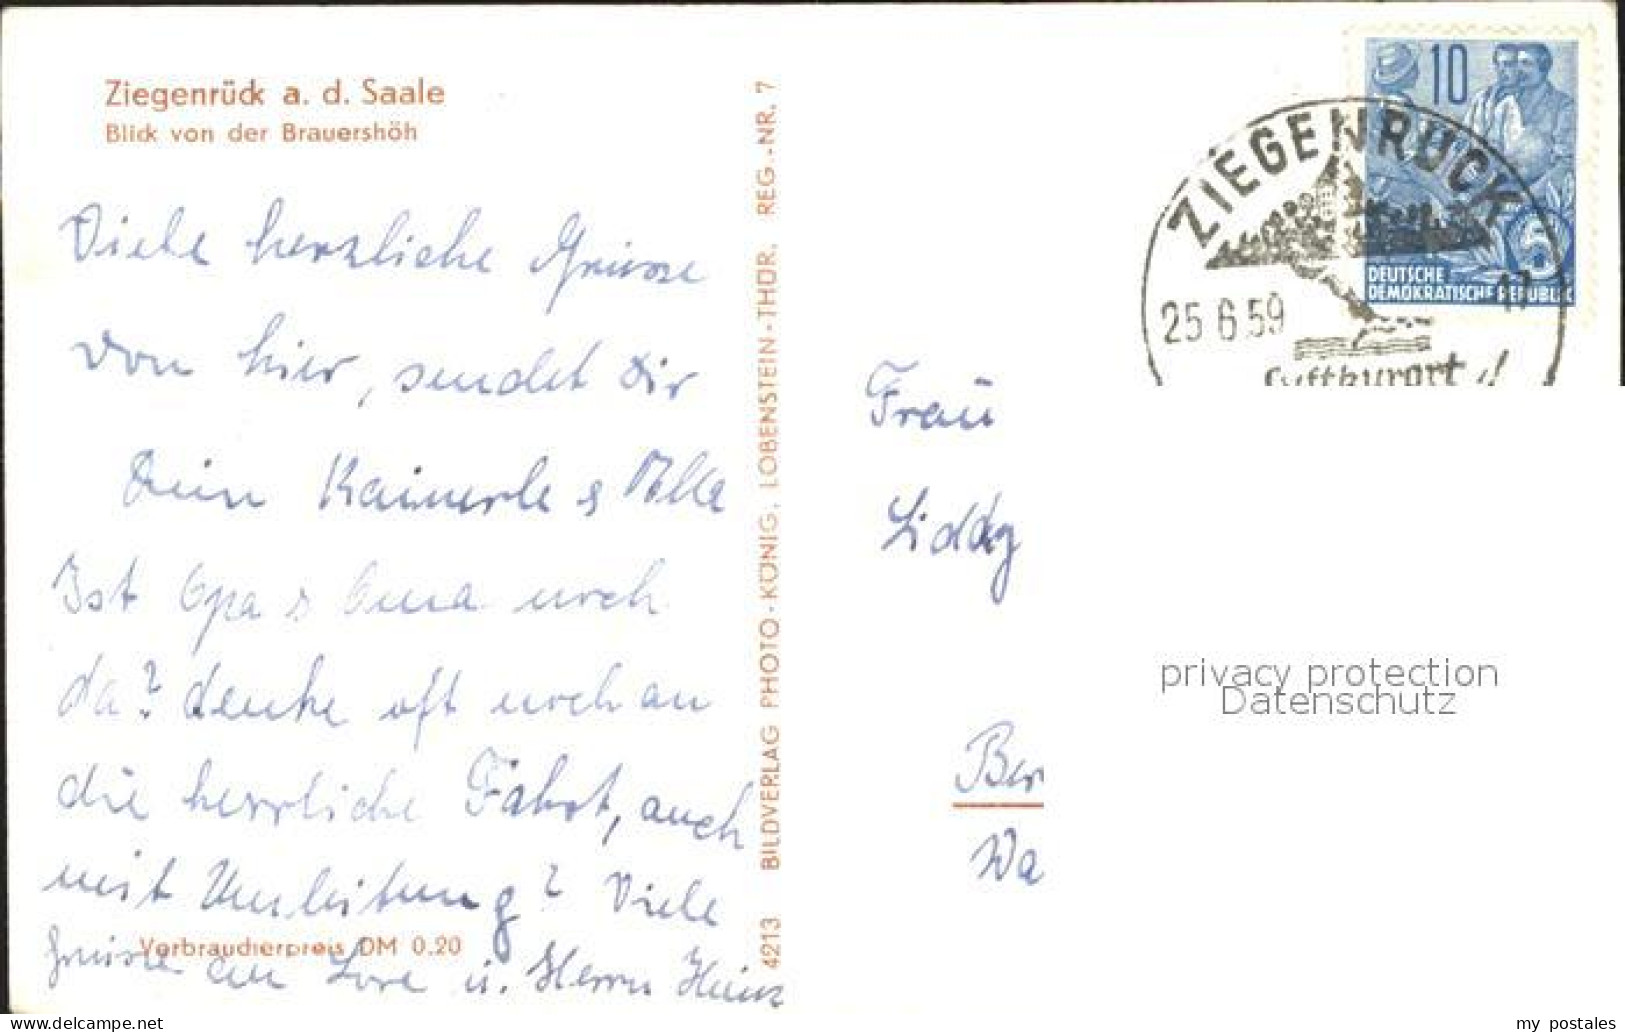 Ziegenrück a. d. Saale
Blick von der Brauershöh
Viele herzliche Grüsse
von hier, sendet Dir
Dein
Ist Opa & Oma noch
da? denke oft noch an
die herrliche Fahrt, auch
mit Umleitung? Viele
Grüsse an Lore u. Herrn Heinz
Verbraucherpreis DM 0.20
4213 BILDVERLAG PHOTO-KÖNIG, LOBENSTEIN-THÜR. REG.-NR. 7
10
5
DEUTSCHE
DEMOKRATISCHE REPUBLIK
ZIEGENRÜCK
25.6.59 17
Luftkurort
Frau
Liddy
Ber
Wa
privacy protection
Datenschutz
www.delcampe.net
my_postales